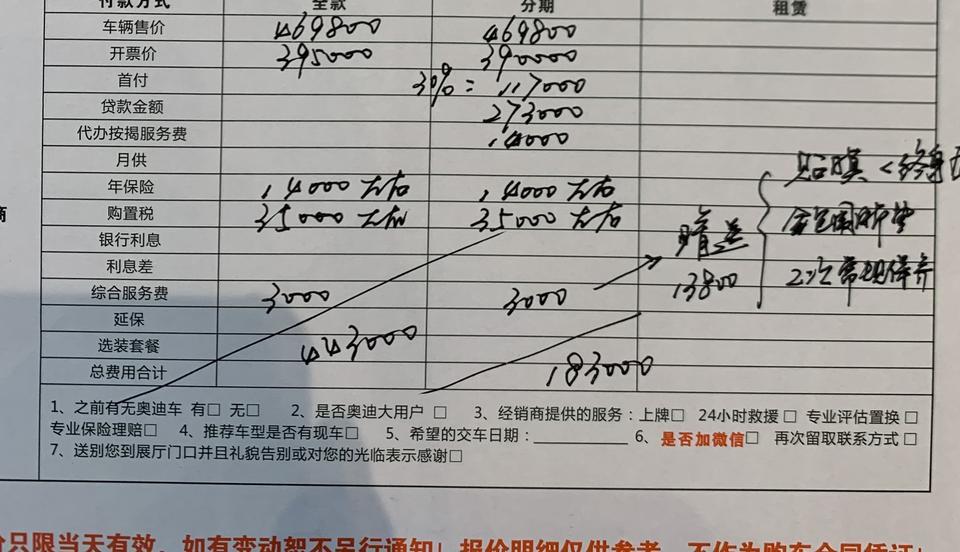 付款方式 全款 分期 租赁
车辆售价 469800 469800
开票价 395000 390000
首付 30% = 117000
贷款金额 273000
代办按揭服务费 14000
月供
年保险 14000 左右 14000 左右
购置税 35000 左右 35000 左右
银行利息
利息差
综合服务费 3000 3000
延保
选装套餐 443000
总费用合计 183000
贴膜<终身
全包围脚垫
2次常规保养
13800
1、之前有无奥迪车 有□ 无□ 2、是否奥迪大用户 □ 3、经销商提供的服务：上牌□ 24小时救援 □ 专业评估置换 □
专业保险理赔□ 4、推荐车型是否有现车□ 5、希望的交车日期：__________ 6、是否加微信□ 再次留取联系方式 □
7、送别您到展厅门口并且礼貌告别或对您的光临表示感谢□
商
价只限当天有效，如有变动恕不另行通知！报价明细仅供参考，不作为购车合同凭证！